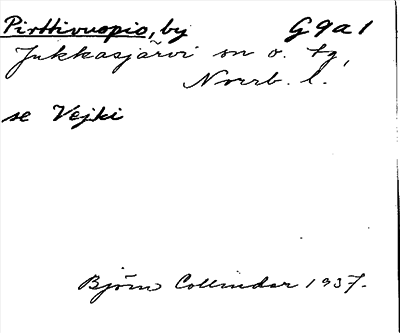 Pirttivuopio, by G9a1
Jukkasjärvi sn o. tg,
Norrb. l.
se Vejki
Björn Collinder 1937.